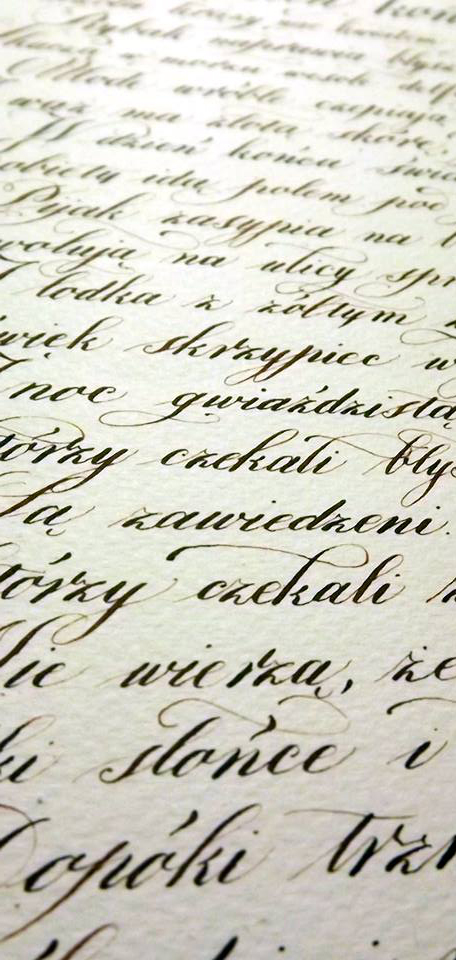 Rybak naprawia błys
Skaczą w morzu wesołe delf
Młode wróble czepiają
wąż ma złotą skórę
W dzień końca świa
obiety idą polem pod
Pijak zasypia na
wołują na ulicy spr
I łódka z żółtym
więk skrzypiec w
I noc gwiaździstą
tórzy czekali błys
Są zawiedzeni.
tórzy czekali
Nie wierzą, że
ki słońce i
Dopóki trzm